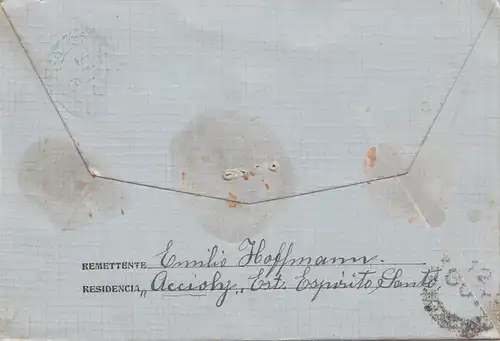 REMETTENTE Emilio Hoffmann.
RESIDENCIA „Accioly„ Est. Espírito Santo